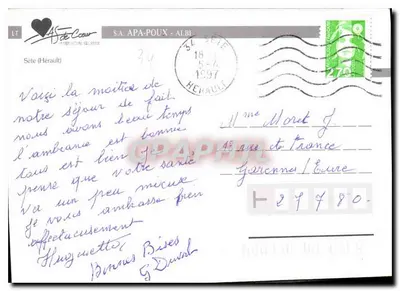 LT
As de Coeur
S.A. APA-POUX - ALBI
Sète (Hérault)
34 SETE
18
5-4
1997
HERAULT
2,70
Voizi la moitiée de
notre séjour de fait
nous avons beau temps
l'ambiance est bonne
tous est bien je
pense que votre santé
va un peu mieux
Je vous embrasse bien
affectueusement
Huguette
Bonnes Bises
G Duval
Mme Moret J
rue de France
Garennes/Eure
27780